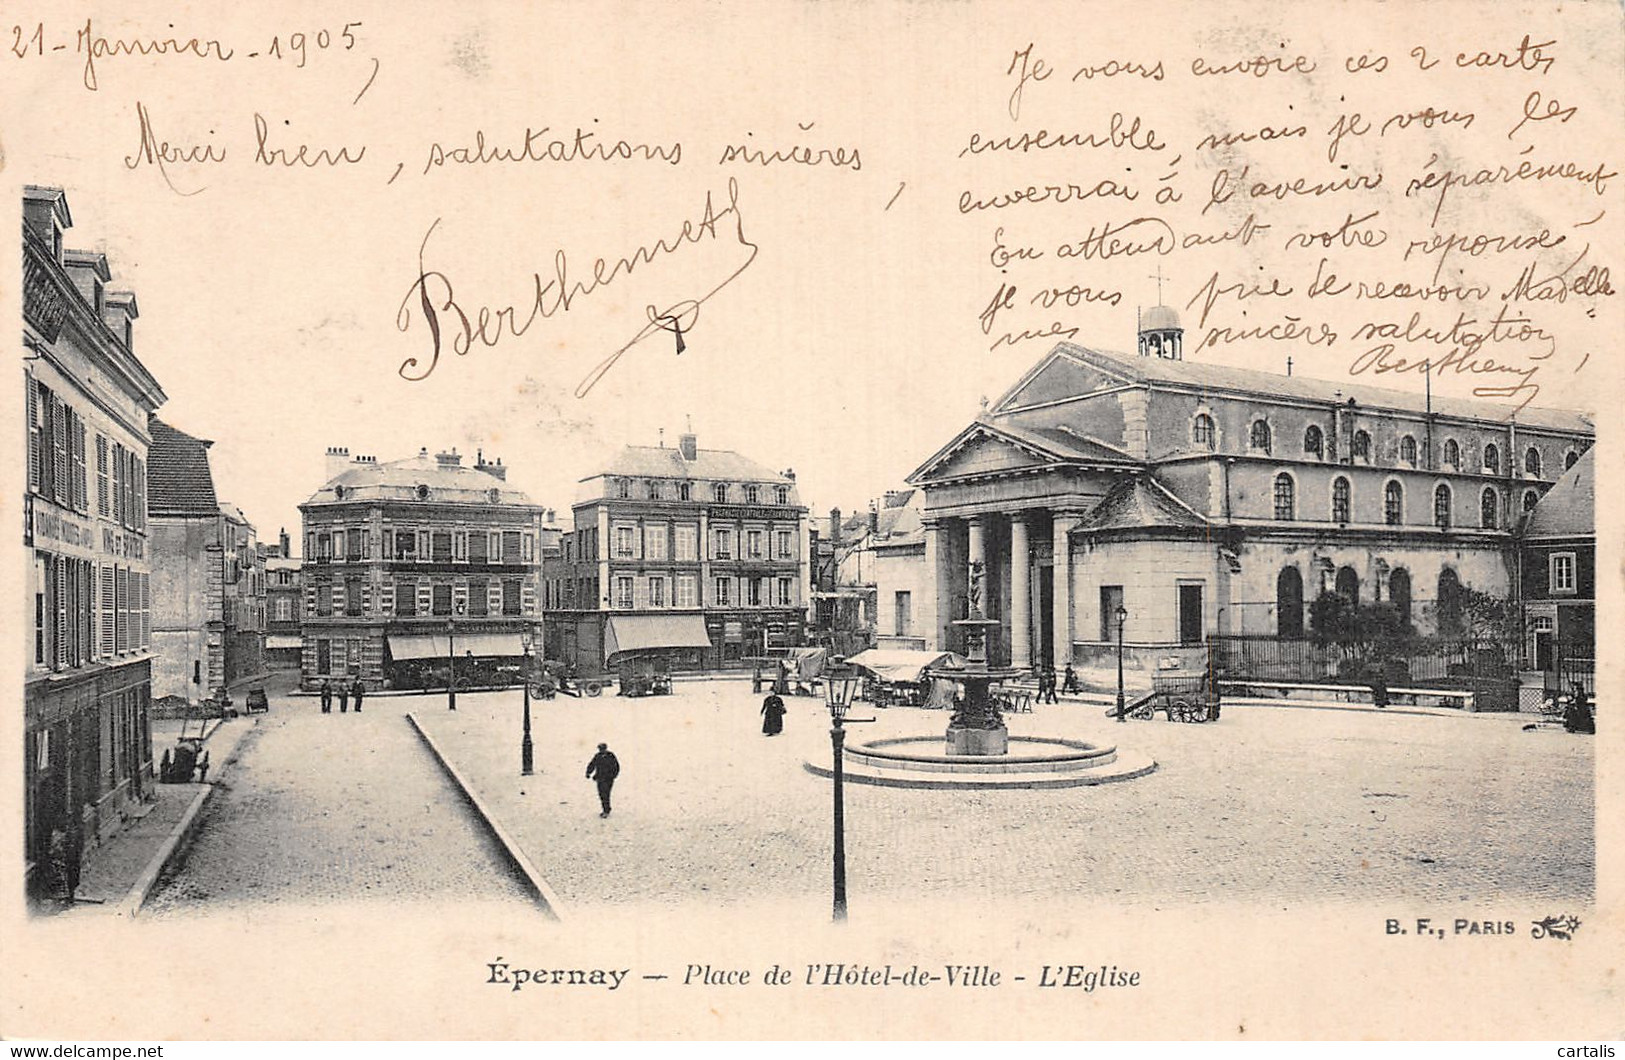 21-Janvier-1905,
Merci bien, salutations sincères,
Berthemet
Je vous envoie ces 2 cartes
ensemble, mais je vous les
enverrai à l'avenir séparément
En attendant votre reponse,
je vous prie de recevoir Madelle
mes sincères salutation
PHARMACIE CENTRALE
B. F., PARIS
Épernay — Place de l'Hôtel-de-Ville - L'Eglise
www.delcampe.net
cartalis